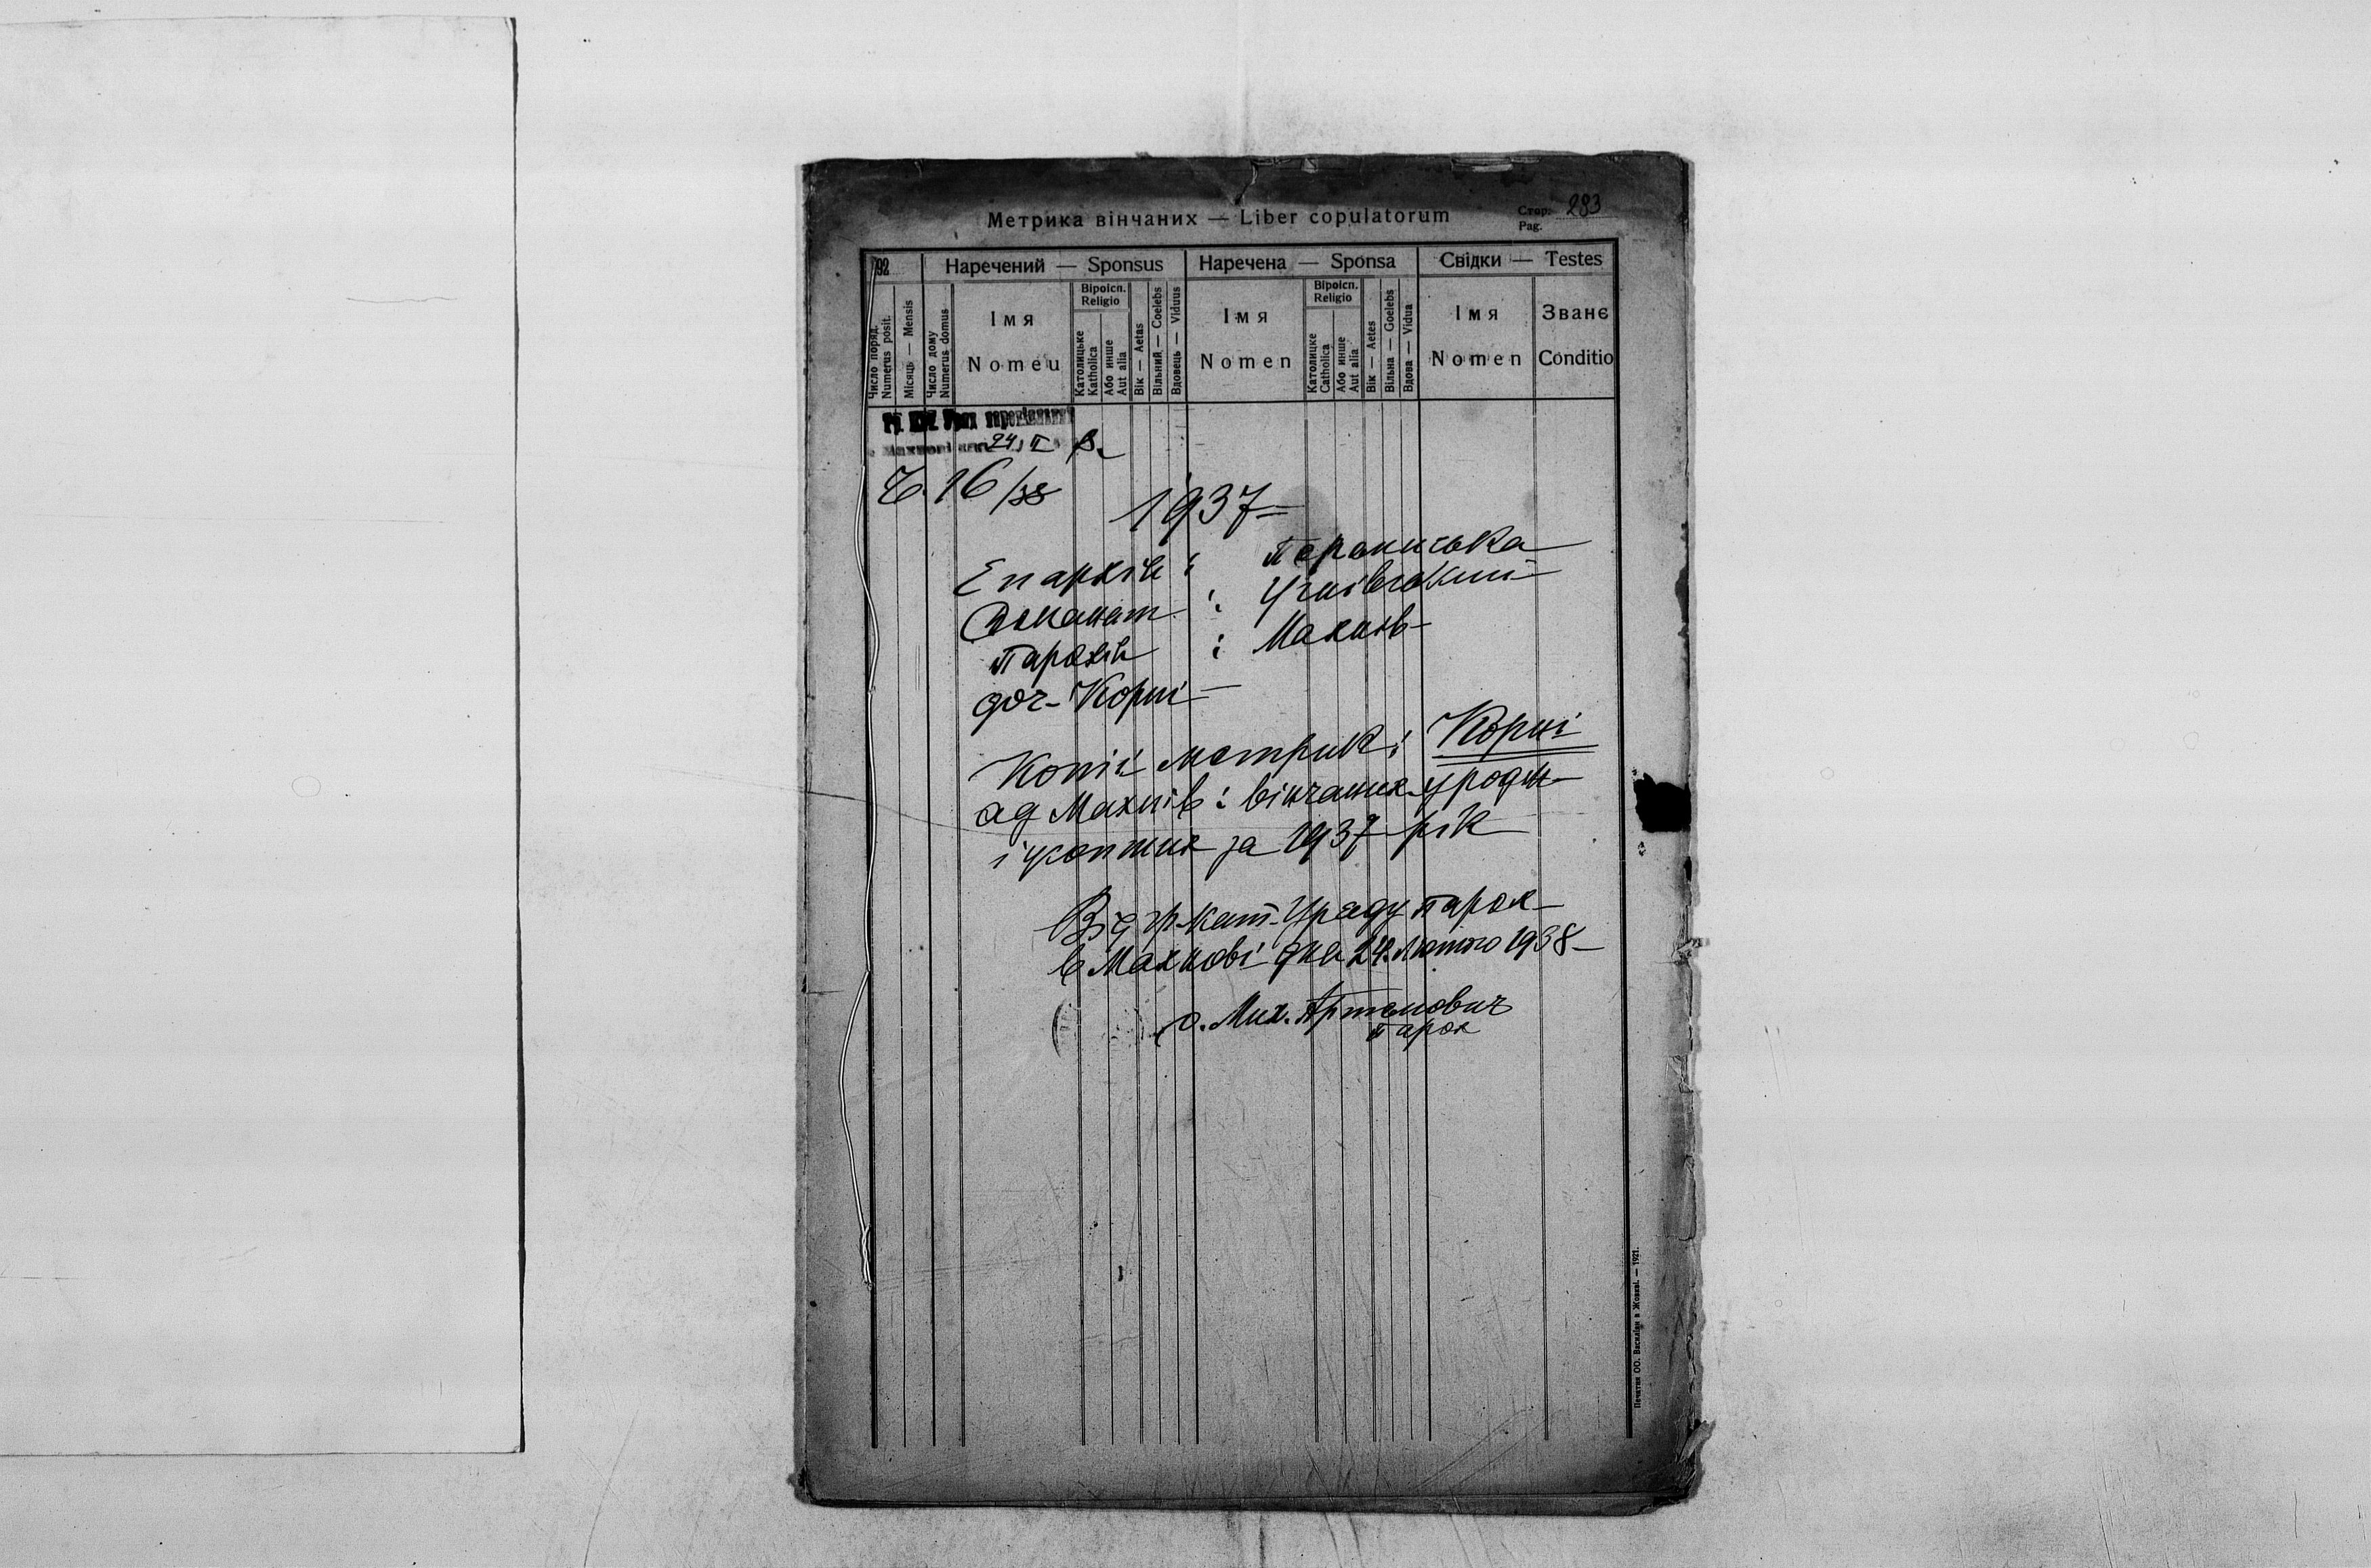 Метрика вінчаних — Liber copulatorum
Стор. 293
Pag.
192
Наречений — Sponsus
Наречена — Sponsa
Свідки — Testes
Число поряд.
Numerus posit.
Місяць — Mensis
Число дому
Numerus domus
Імя
Nomeu
Віроісп.
Religio
Католицьке
Katholica
Або инше
Aut alia
Вік — Aetas
Вільний — Coelebs
Вдовець — Viduus
Імя
Nomen
Віроісп.
Religio
Католицке
Catholica
Або инше
Aut alia
Вік — Aetes
Вільна — Goelebs
Вдова — Vidua
Імя
Nomen
Званє
Conditio
Гр. кат. Уряд парохіяльний
в Махнові дня 24/II
Ч. 16/38
1937
Епархія : Перемиська
Деканат : Угнівский
Парохія : Махнів
доч. Корні
Копії метрик : Корні
ад Махнів : вінчаних уродж
і усопших за 1937 рік
Від гр. кат. Уряду парох
в Махнові дня 24. лютого 1938
о. Мих. Артемович
парох
Печатня ОО. Василіан в Жовкві. — 1921.